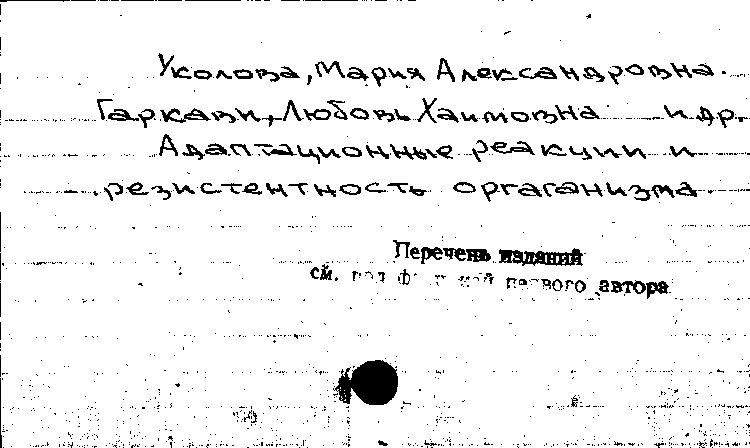 Уколова, Мария Александровна.
Гаркави, Любовь Хаимовна и др.
Адаптационные реакции и
резистентность оргаганизма.
Перечень изданий
см. под ф первого автора